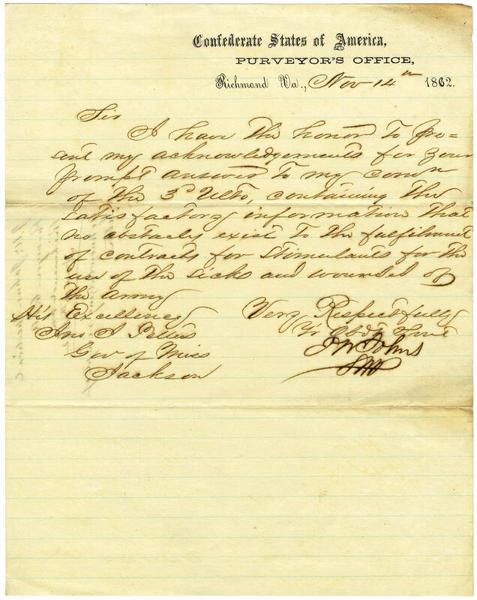 Confederate States of America,
PURVEYOR'S OFFICE,
Richmond Va., Nov 14th 1862.
Sir
I have the honor to pre-
sent my acknowledgements for your
prompt answer to my comn
of the 3d Ulto, containing the
satisfactory information that
no obstacle exist to the fulfilment
of contracts for stimulants for the
use of the sick and wounded of
the army
Very Respectfully
Yr Obdt Srvt
J W Johns
His Excellency
Jno J Pettus
Gov of Miss
Jackson